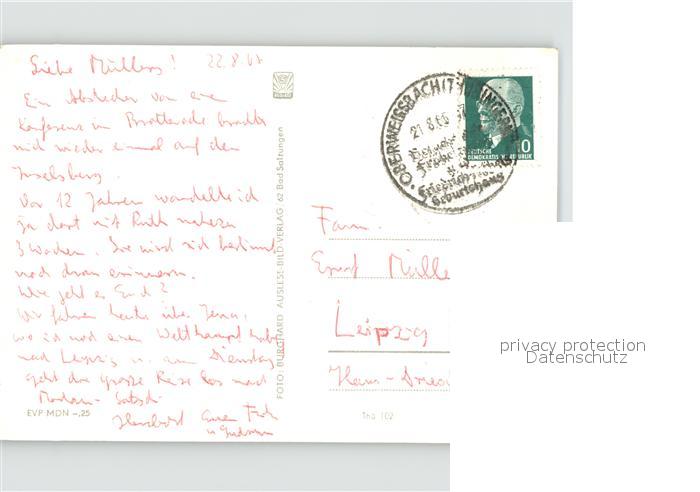 Liebe Müllers! 22.8.
Ein Abstecher von einer
Konferenz in Brotterode brachte
mich wieder einmal auf den
Inselsberg.
Vor 12 Jahren wandelte ich
ja dort mit Ruth nahezu
3 Wochen. Sie wird sich bestimmt
noch dran erinnern.
Wie geht es Euch?
Wir fahren heute über Jena,
wo ich noch einen Wettkampf habe
nach Leipzig u. am Dienstag
geht die große Reise los nach
Herzlichst Euer
EVP MDN -,25
FOTO: BURGHARD AUSLESE-BILD-VERLAG 62 Bad Salzungen
OBERWEISSBACH (THÜRINGER
21.8.66
Besucht
Geburtshaus
10
DEUTSCHE
DEMOKRATISCHE REPUBLIK
Fam.
Ernst Mülle
Leipzig
Hans-Driesc
Thü 102
privacy protection
Datenschutz